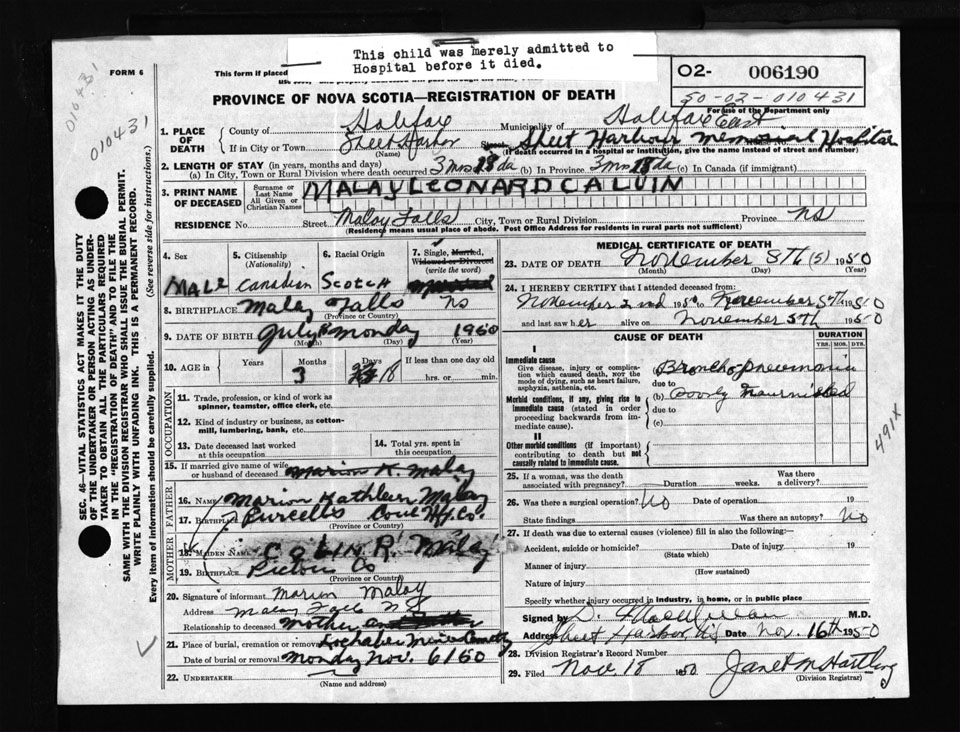 This child was merely admitted to
Hospital before it died.
FORM 6
This form if placed
O2- 006190
50-02-010431
For use of the Department only
010431
010431
PROVINCE OF NOVA SCOTIA—REGISTRATION OF DEATH
1. PLACE OF DEATH
County of Halifax
Municipality of Halifax East
If in City or Town Sheet Harbor
(Name)
Street Sheet Harbour Memorial Hospital
(If death occurred in a hospital or institution, give the name instead of street and number)
2. LENGTH OF STAY (in years, months and days)
(a) In City, Town or Rural Division where death occurred 3 mos 18 da (b) In Province 3 mos 18 da (c) In Canada (if immigrant)
3. PRINT NAME OF DECEASED
Surname or Last Name
All Given or Christian Names
MALAY LEONARD CALVIN
RESIDENCE No. Street Malay Falls City, Town or Rural Division Province NS
(Residence means usual place of abode. Post Office Address for residents in rural parts not sufficient)
4. Sex
MALE
5. Citizenship
(Nationality)
Canadian
6. Racial Origin
Scotch
7. Single, Married,
Widowed or Divorced
(write the word)
8. BIRTHPLACE Malay Falls NS
(Province or Country)
9. DATE OF BIRTH July Monday 1950
(Month) (Day) (Year)
10. AGE in
Years
Months
3
Days
18
If less than one day old
hrs. or min.
OCCUPATION
11. Trade, profession, or kind of work as
spinner, teamster, office clerk, etc.
12. Kind of industry or business, as cotton-
mill, lumbering, bank, etc.
13. Date deceased last worked
at this occupation
14. Total yrs. spent in
this occupation
15. If married give name of wife
or husband of deceased Marion K. Malay
FATHER
16. Name Marion Kathleen Malay
17. Birthplace Purcells Cove Hfx. Co.
(Province or Country)
MOTHER
18. Maiden Name Colin R. Malay
19. Birthplace Pictou Co
(Province or Country)
20. Signature of informant Marion Malay
Address Malay Falls NS
Relationship to deceased Mother
21. Place of burial, cremation or removal Lochaber Mines Cemetry
Date of burial or removal Monday Nov. 6/50
22. UNDERTAKER
(Name and address)
MEDICAL CERTIFICATE OF DEATH
23. DATE OF DEATH November 5th (5) 1950
(Month) (Day) (Year)
24. I HEREBY CERTIFY that I attended deceased from:
November 2nd 1950 to November 5th 1950
and last saw her alive on November 5th 1950
CAUSE OF DEATH
DURATION
YRS. MOS. DYS.
I
Immediate cause
Give disease, injury or complication which caused death, NOT the mode of dying, such as heart failure, asphyxia, asthenia, etc.
Broncho pneumonia
due to
Morbid conditions, if any, giving rise to immediate cause (stated in order proceeding backwards from immediate cause).
(b) Poorly Nourished
due to
(c)
II
Other morbid conditions (if important) contributing to death but not causally related to immediate cause.
491X
25. If a woman, was the death
associated with pregnancy? Duration weeks.
Was there
a delivery?
26. Was there a surgical operation? No Date of operation 19
State findings Was there an autopsy? No
27. If death was due to external causes (violence) fill in also the following:—
Accident, suicide or homicide? Date of injury 19
(State which)
Manner of injury
(How sustained)
Nature of injury
Specify whether injury occurred in industry, in home, or in public place
Signed by D. MacMillan M.D.
Address Sheet Harbor, NS Date Nov. 16th 1950
28. Division Registrar's Record Number
29. Filed Nov. 18 1950 Janet M Hartling
(Division Registrar)
SEC. 46—VITAL STATISTICS ACT MAKES IT THE DUTY
OF THE UNDERTAKER OR PERSON ACTING AS UNDER-
TAKER TO OBTAIN ALL THE PARTICULARS REQUIRED
IN THE "REGISTRATION OF DEATH" AND TO FILE THE
SAME WITH THE DIVISION REGISTRAR WHO SHALL ISSUE THE BURIAL PERMIT.
WRITE PLAINLY WITH UNFADING INK. THIS IS A PERMANENT RECORD.
Every item of information should be carefully supplied. (See reverse side for instructions.)